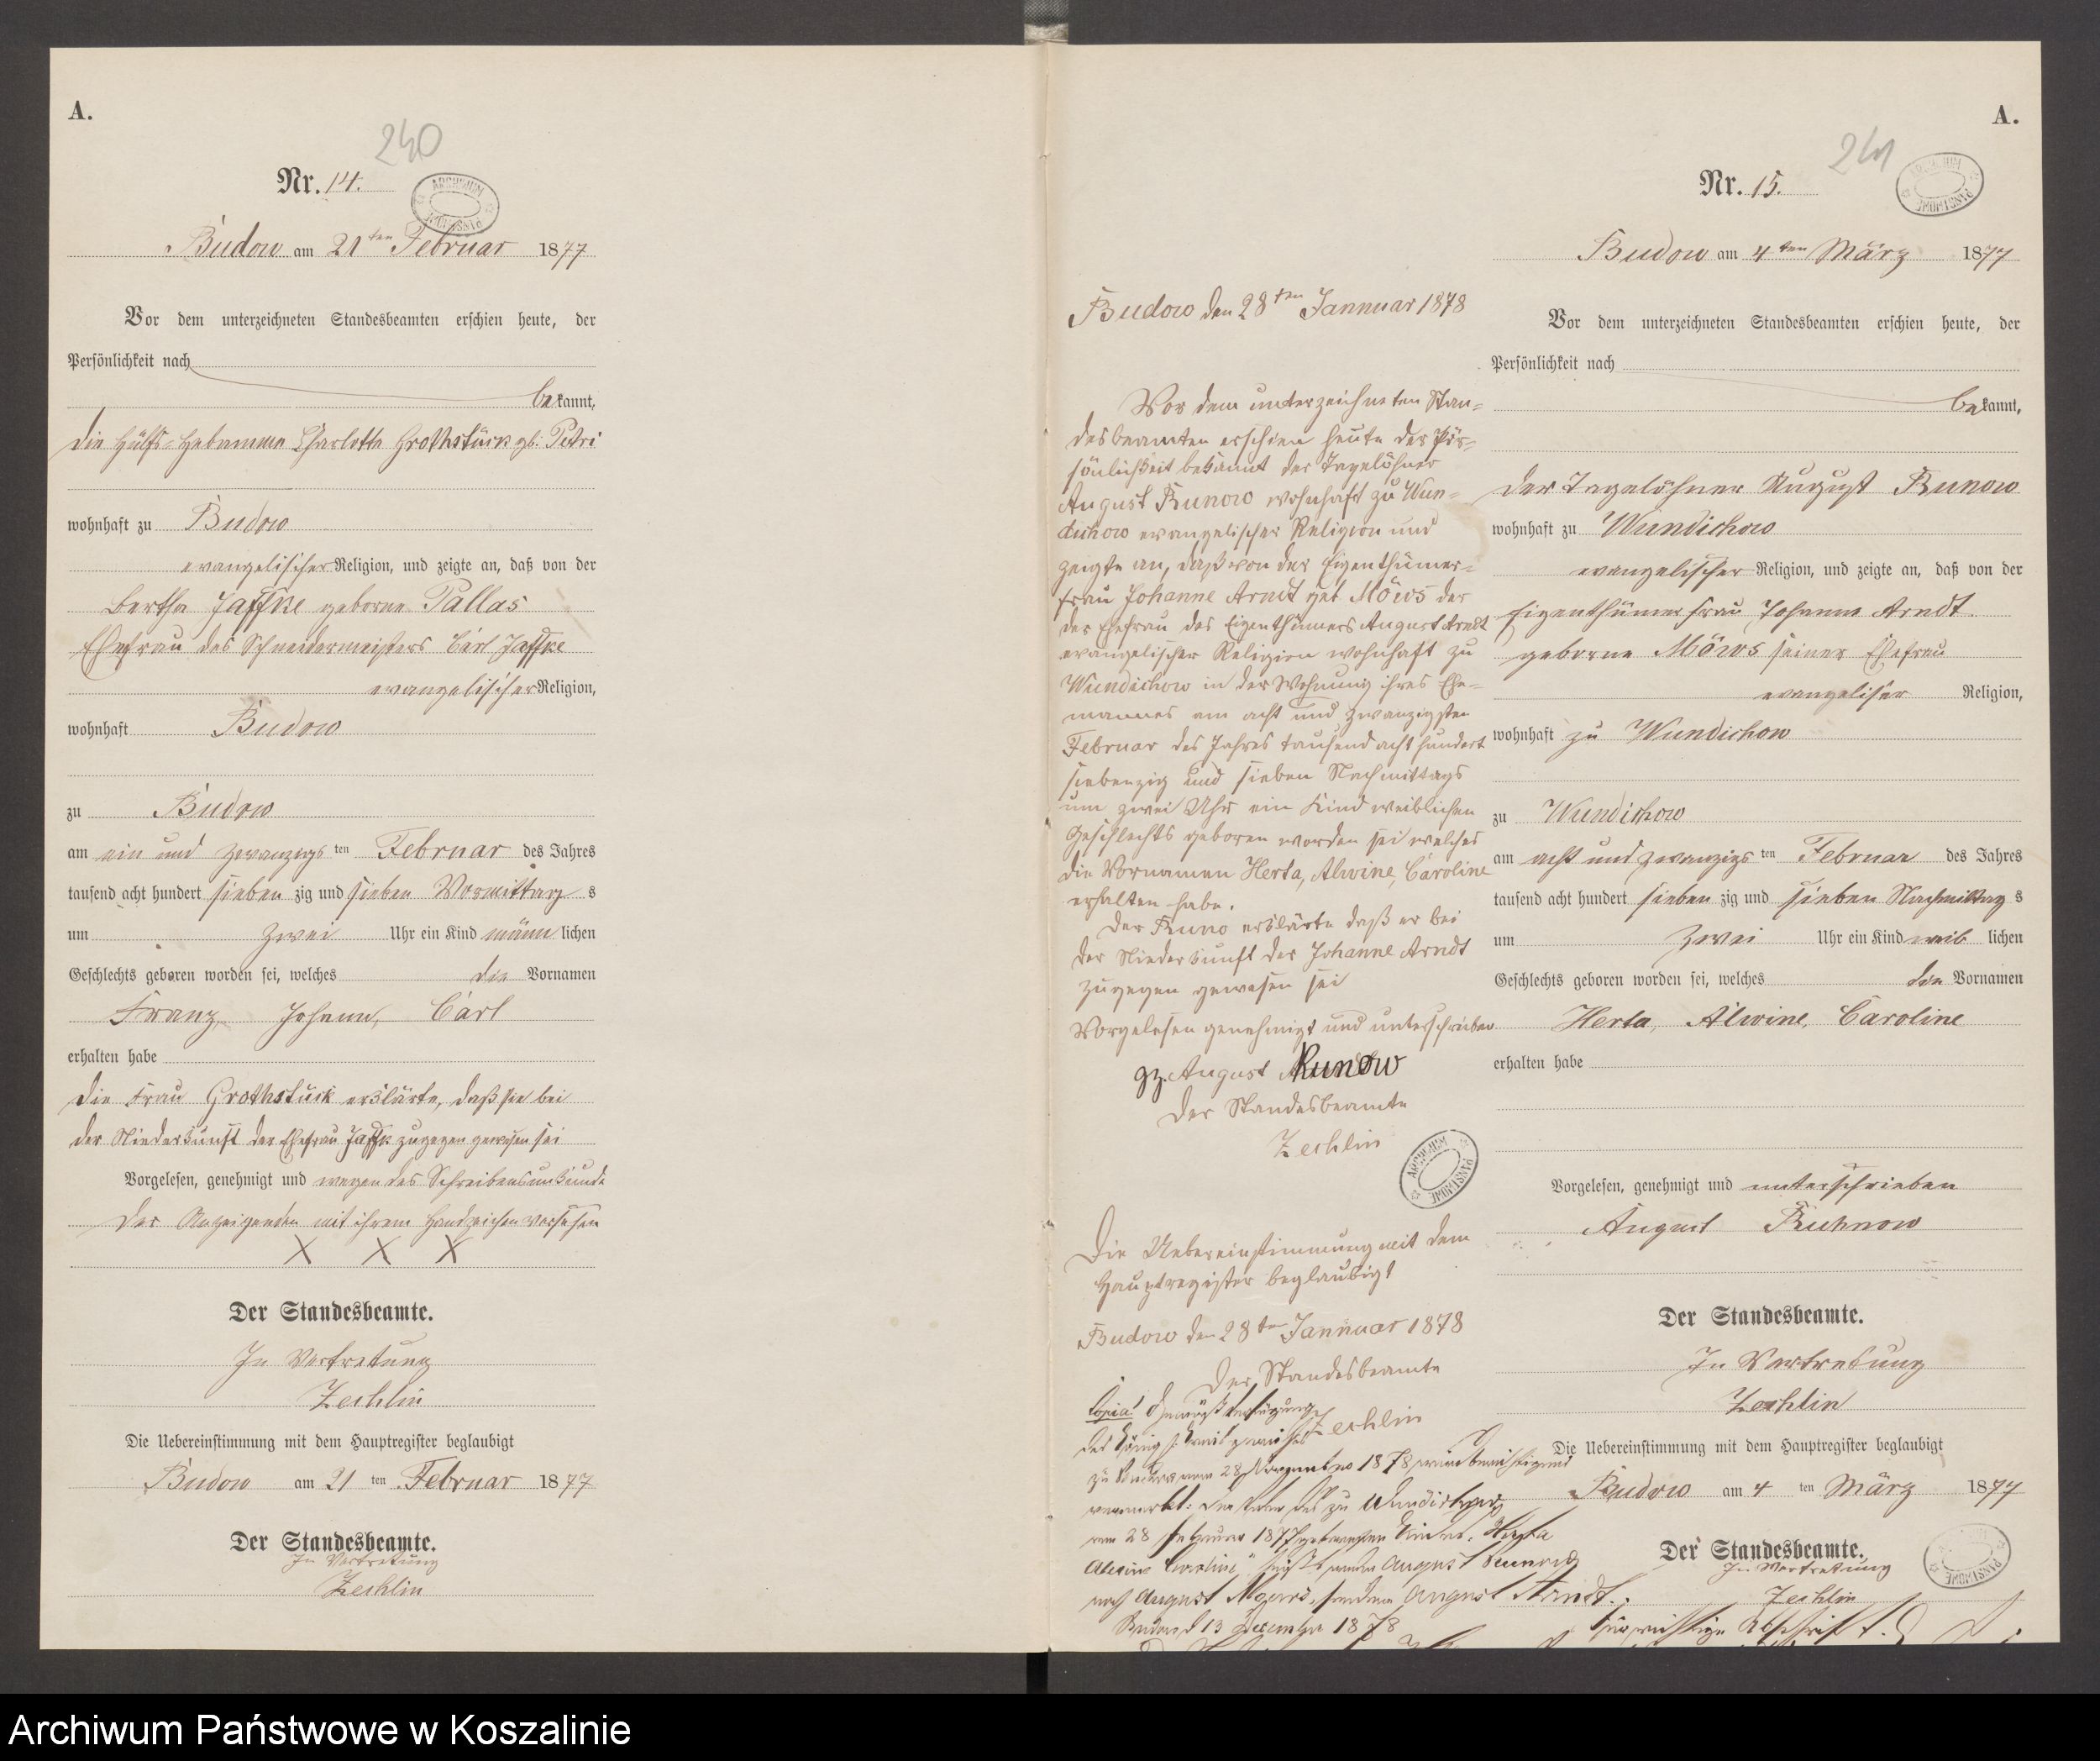 A.
240
Nr. 14.
ARCHIWUM PAŃSTWOWE
Budow am 21ten Februar 1877
Vor dem unterzeichneten Standesbeamten erschien heute, der
Persönlichkeit nach
bekannt,
die Hülfs-Hebamme Charlotte Grothstück gb. Petri
wohnhaft zu Budow
evangelischer Religion, und zeigte an, daß von der
Bertha Jaffke geborne Pallas
Ehefrau des Schneidermeisters Carl Jaffke
evangelischer Religion,
wohnhaft Budow
zu Budow
am ein und zwanzigs ten Februar des Jahres
tausend acht hundert sieben zig und sieben Vormittag s
um zwei Uhr ein Kind männ lichen
Geschlechts geboren worden sei, welches die Vornamen
Franz Johann, Carl
erhalten habe
die Frau Grothstück erklärte, daß sie bei
der Niederkunft der Ehefrau Jaffke zugegen gewesen sei
Vorgelesen, genehmigt und wegen des Schreibensunkunde
der Anzeigenden mit ihrem Handzeichen versehen
X X X
Der Standesbeamte.
In Vertretung
Zechlin
Die Uebereinstimmung mit dem Hauptregister beglaubigt
Budow am 21 ten Februar 1877
Der Standesbeamte.
In Vertretung
Zechlin
Budow den 28ten Jannuar 1878
Vor dem unterzeichneten Stan=
desbeamten erschien heute der Për=
sönlichkeit bekannt der Tagelöhner
August Runow wohnhaft zu Wun=
dichow evangelischer Religion und
zeigte an, daß von der Eigenthümer=
frau Johanne Arndt geb Möws der
der Ehefrau des Eigenthümers August Arndt
evangelischer Religion wohnhaft zu
Wundichow in der Wohnung ihres Ehe=
mannes am acht und zwanzigsten
Februar des Jahres tausend acht hundert
siebenzig und sieben Nachmittags
um zwei Uhr ein Kind weiblichen
Geschlechts geboren worden sei welches
die Vornamen Herta, Alwine, Caroline
erhalten habe.
Der Runo erklärte daß er bei
der Niederkunft der Johanne Arndt
zugegen gewesen sei
Vorgelesen genehmigt und unterschrieben
gz. August Runow
Der Standesbeamte
Zechlin
ARCHIWUM PAŃSTWOWE
Die Uebereinstimmung mit dem
Hauptregister beglaubigt
Budow den 28ten Jannuar 1878
Der Standesbeamte
Zechlin
Copia! Gemäß Verfügung
des Königl.
zu vom 28 November 1878 wird berichtigend
vermerkt: der Vater des zu Wundichow
am 28 Februar 1877 geborenen Kindes Herta
Alwine Caroline, heißt weder August Runow
noch August Moews, sondern August Arndt.
Budow d 13 Dezember 1878
A.
241
Nr. 15.
ARCHIWUM PAŃSTWOWE
Budow am 4ten März 1877
Vor dem unterzeichneten Standesbeamten erschien heute, der
Persönlichkeit nach
bekannt,
der Tagelöhner August Runow
wohnhaft zu Wundichow
evangelischer Religion, und zeigte an, daß von der
Eigenthümerfrau Johanne Arndt
geborne Möws seiner Ehefrau
evangelischer Religion,
wohnhaft zu Wundichow
zu Wundichow
am acht und zwanzigs ten Februar des Jahres
tausend acht hundert sieben zig und sieben Nachmittag s
um zwei Uhr ein Kind weib lichen
Geschlechts geboren worden sei, welches den Vornamen
Herta, Alwine, Caroline
erhalten habe
Vorgelesen, genehmigt und unterschrieben
August Ruhnow
Der Standesbeamte.
In Vertretung
Zechlin
Die Uebereinstimmung mit dem Hauptregister beglaubigt
Budow am 4 ten März 1877
Der Standesbeamte.
In Vertretung
Zechlin
PAŃSTWOWE
Für richtige Abschrift.
Archiwum Państwowe w Koszalinie